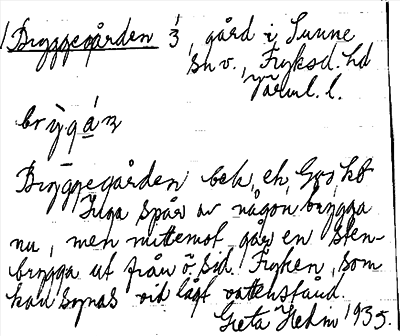 Bryggegården 1/3, gård i Sunne
sn v., Fryksd. hd
Värml. l.
Bryggegården bek. ek.
Inga spår av någon brygga
nu, men mittemot går en sten-
brygga ut från ö. sid. Fryken, som
kan synas vid lågt vattenstånd.
Greta Hedin 1935.